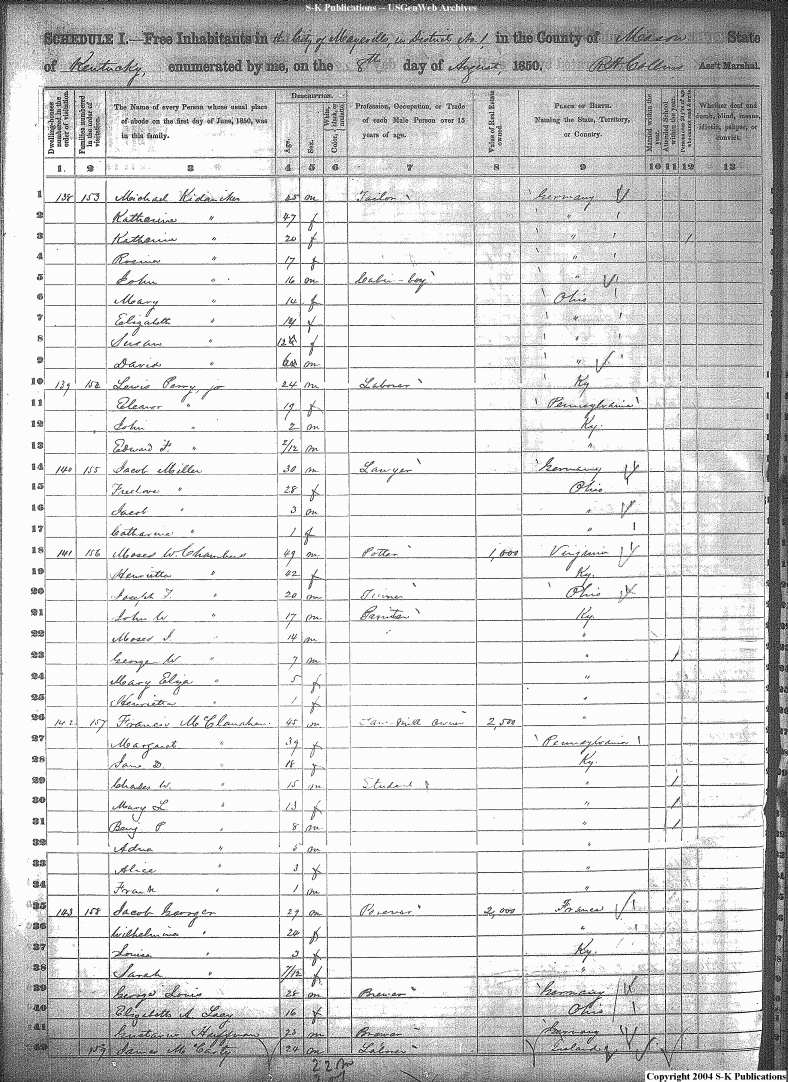 S-K Publications -- USGenWeb Archives
SCHEDULE I.—Free Inhabitants in the City of Maysville, in District No. 1, in the County of Mason State
of Kentucky, enumerated by me, on the 8th day of August, 1850. R H Collins Ass't Marshal.
Dwelling-houses numbered in the order of visitation. Families numbered in the order of visitation. The Name of every Person whose usual place of abode on the first day of June, 1850, was in this family. DESCRIPTION. Age. Sex. White, Color, black, or mulatto. Profession, Occupation, or Trade of each Male Person over 15 years of age. Value of Real Estate owned. PLACE OF BIRTH. Naming the State, Territory, or Country. Married within the year. Attended School within the year. Whether deaf and dumb, blind, insane, idiotic, pauper, or convict.
1 2 3 4 5 6 7 8 9 10 11 12 13
1 138 153 Michael 45 m Tailor Germany
2 Katharine " 47 f "
3 Katharine " 20 f " /
4 Rosina " 17 f "
5 John " 16 m Cabin-boy "
6 Mary " 14 f Ohio
7 Elizabeth " 14 f "
8 Susan " f "
9 David " m "
10 139 Lewis Perry, jr 24 m Laborer Ky
11 Eleanor " 19 f Pennsylvania
12 John " 2 m Ky.
13 Edward F. " 2/12 m "
14 140 155 Jacob Miller 30 m Lawyer Germany
15 Freelove " 28 f Ohio
16 Jacob " 3 m "
17 Catharine " 1 f "
18 141 156 Moses W Chambers 49 m Potter 1,000 Virginia
19 Henrietta " 42 f Ky.
20 Joseph T. " 20 m Ohio
21 John W " 17 m Ky.
22 Moses " 14 m "
23 George W " 7 m " /
24 Mary Eliza " 5 f "
25 Henrietta " 1 f "
26 142 157 Francis 45 m Saw-Mill Owner 2,500 "
27 Margaret " 39 f Pennsylvania
28 Jane D. " 18 f Ky.
29 Charles W. " 15 m Student " /
30 Mary L " 13 f " /
31 Benj P " 8 m " /
32 " m "
33 Alice " 3 f "
34 Frank " 1 m "
35 143 158 Jacob 29 m 2,000 France
36 Wilhelmina " 24 f "
37 Louisa " 3 f Ky.
38 Sarah " 7/12 f "
39 George Louis 28 m Brewer Germany
40 Elizabeth A Lacy 16 f Ohio
41 23 m Brewer Germany
42 159 James McCarty 24 m Laborer Ireland
22 m
Copyright 2004 S-K Publications